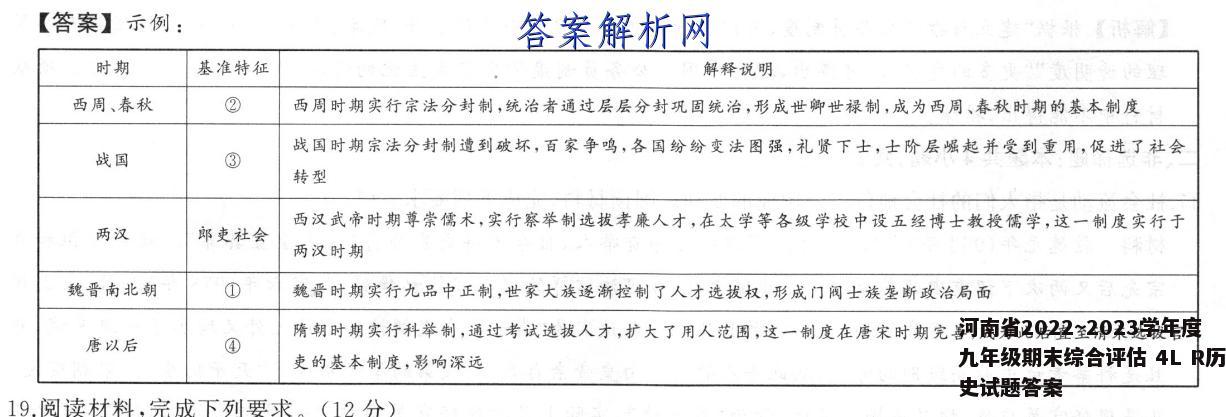 【答案】示例:
答案解析网
时期 基准特征 解释说明
西周、春秋 ② 西周时期实行宗法分封制,统治者通过层层分封巩固统治,形成世卿世禄制,成为西周、春秋时期的基本制度
战国 ③ 战国时期宗法分封制遭到破坏,百家争鸣,各国纷纷变法图强,礼贤下士,士阶层崛起并受到重用,促进了社会
转型
两汉 郎吏社会 西汉武帝时期尊崇儒术,实行察举制选拔孝廉人才,在太学等各级学校中设五经博士教授儒学,这一制度实行于
两汉时期
魏晋南北朝 ① 魏晋时期实行九品中正制,世家大族逐渐控制了人才选拔权,形成门阀士族垄断政治局面
唐以后 ④ 隋朝时期实行科举制,通过考试选拔人才,扩大了用人范围,这一制度在唐宋时期完善
吏的基本制度,影响深远
河南省2022~2023学年度
九年级期末综合评估 4L R历
史试题答案
19.阅读材料,完成下列要求。(12分)